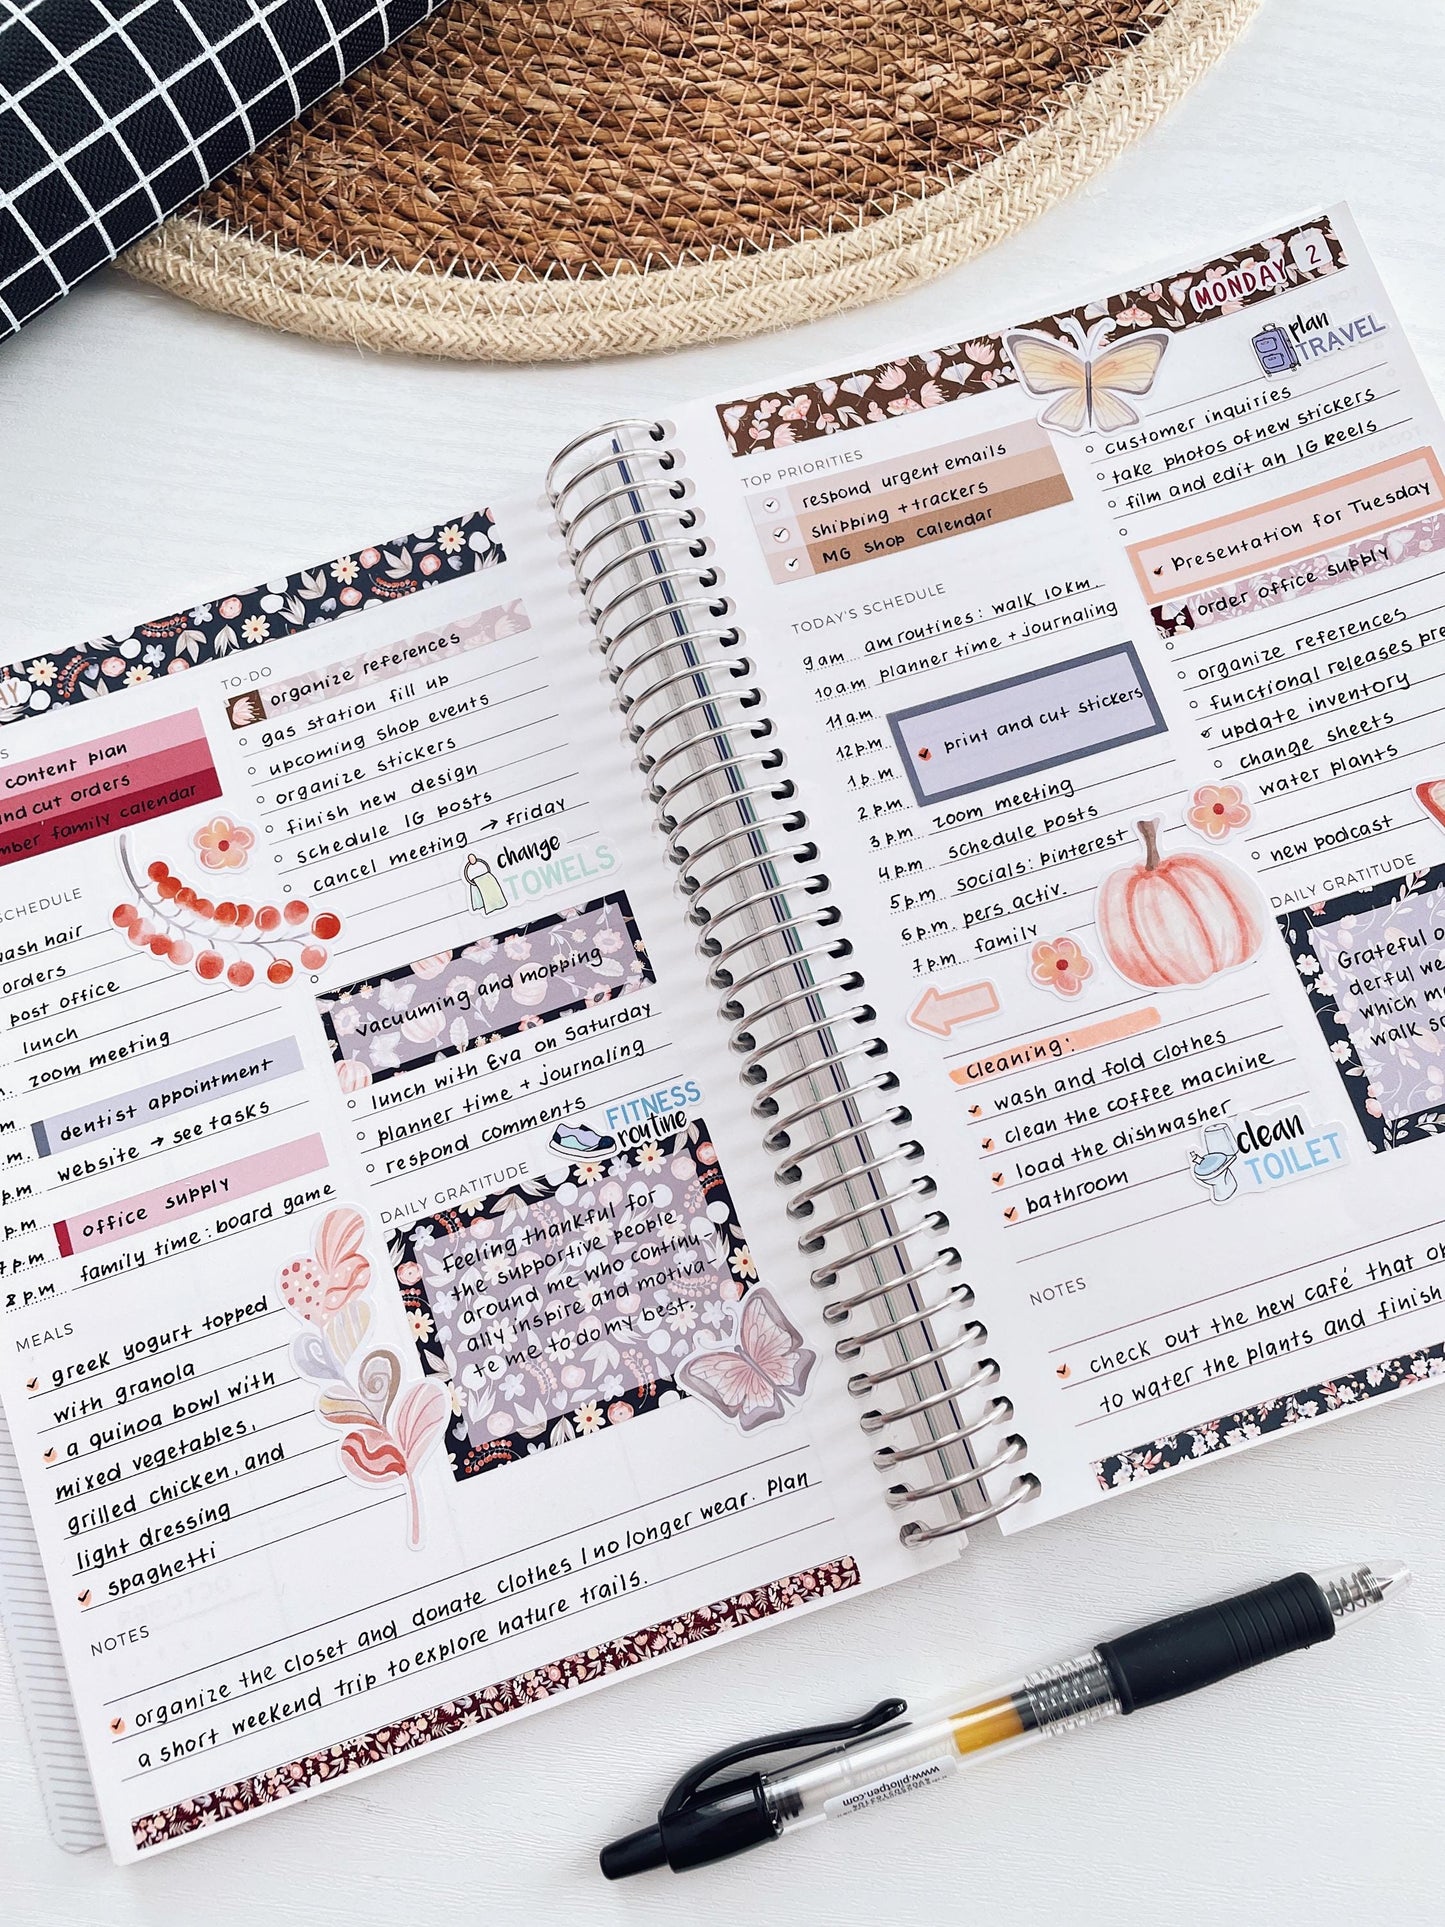 AY
TO-DO
organize references
gas station fill up
upcoming shop events
organize stickers
finish new design
schedule IG posts
cancel meeting → friday
change
TOWELS
vacuuming and mopping
lunch with Eva on Saturday
planner time + journaling
respond comments
FITNESS
routine
DAILY GRATITUDE
Feeling thankful for
the supportive people
around me who continu-
ally inspire and motiva-
te me to do my best.
S
content plan
nd cut orders
mber family calendar
SCHEDULE
ash hair
orders
post office
lunch
zoom meeting
dentist appointment
website → see tasks
office supply
7 p.m
family time: board game
8 p.m.
MEALS
greek yogurt topped
with granola
a quinoa bowl with
mixed vegetables,
grilled chicken, and
light dressing
spaghetti
NOTES
organize the closet and donate clothes I no longer wear. Plan
a short weekend trip to explore nature trails.
MONDAY 2
TOP PRIORITIES
respond urgent emails
shipping + trackers
MG shop calendar
TODAY'S SCHEDULE
9 am am routines: walk 10km.
10 a.m planner time + journaling
11 a.m
12 p.m print and cut stickers
1 p.m
2 p.m
3 p.m zoom meeting
4 p.m schedule posts
5 p.m socials: pinterest
6 p.m. pers. activ.
7 p.m family
Cleaning:
wash and fold clothes
clean the coffee machine
load the dishwasher
bathroom
clean
TOILET
plan
TRAVEL
customer inquiries
take photos of new stickers
film and edit an IG Reels
Presentation for Tuesday
order office supply
organize references
functional releases pre
update inventory
change sheets
water plants
new podcast
DAILY GRATITUDE
Grateful o
derful we
which m
walk s
NOTES
check out the new café that o
to water the plants and finish
www.pilotpen.com